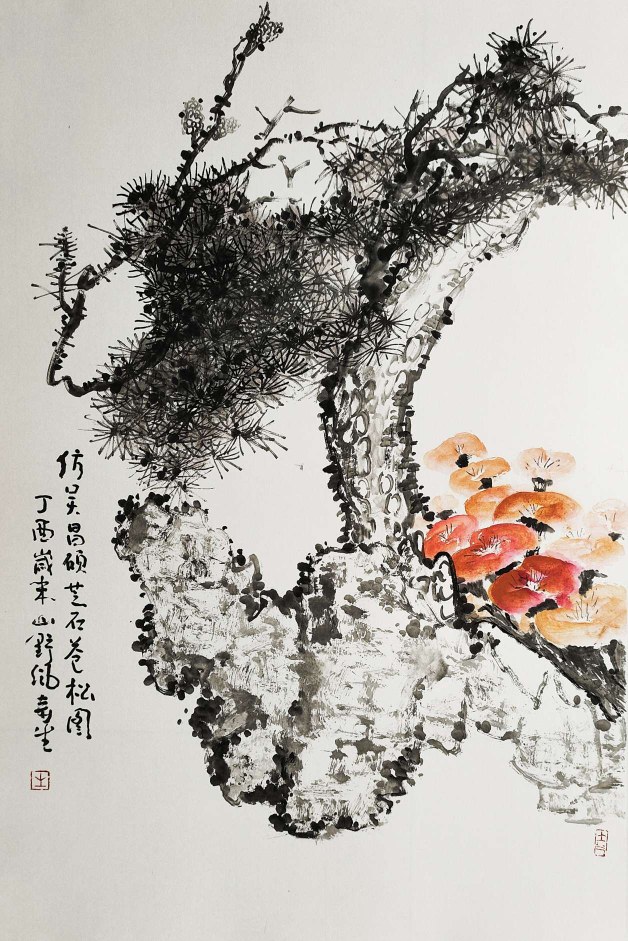 仿吴昌硕芝石苍松图
丁酉岁末山野
生
王